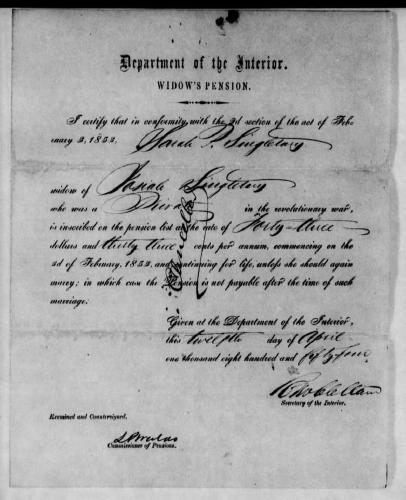 Department of the Interior.
WIDOW'S PENSION.
I certify that in conformity with the 2d section of the act of Feb-
ruary 3, 1853, Sarah P. Singletary
widow of Josiah Singletary
who was a Private in the revolutionary war,
is inscribed on the pension list at the rate of Forty-three
dollars and thirty three cents per annum, commencing on the
3d of February, 1853, and continuing for life, unless she should again
marry; in which case the pension is not payable after the time of such
marriage:
Cancelled
Given at the Department of the Interior,
this twelfth day of April
one thousand eight hundred and fifty four
R McClelland
Secretary of the Interior.
Examined and Countersigned.
Commissioner of Pensions.